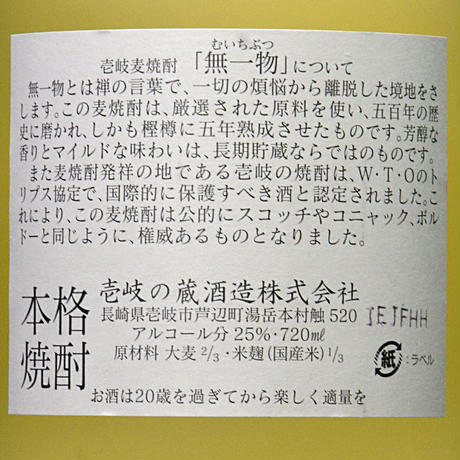 むいちぶつ
壱岐麦焼酎「無一物」について
無一物とは禅の言葉で、一切の煩悩から離脱した境地をさ
します。この麦焼酎は、厳選された原料を使い、五百年の歴
史に磨かれ、しかも樫樽に五年熟成させたものです。芳醇な
香りとマイルドな味わいは、長期貯蔵ならではのものです。
また麦焼酎発祥の地である壱岐の焼酎は、W・T・Oのト
リプス協定で、国際的に保護すべき酒と認定されました。こ
れにより、この麦焼酎は公的にスコッチやコニャック、ボル
ドーと同じように、権威あるものとなりました。
本格
焼酎
壱岐の蔵酒造株式会社
長崎県壱岐市芦辺町湯岳本村触520
アルコール分25%・720mℓ
原材料 大麦2/3・米麹(国産米)1/3
JEJFHH
紙:ラベル
お酒は20歳を過ぎてから楽しく適量を